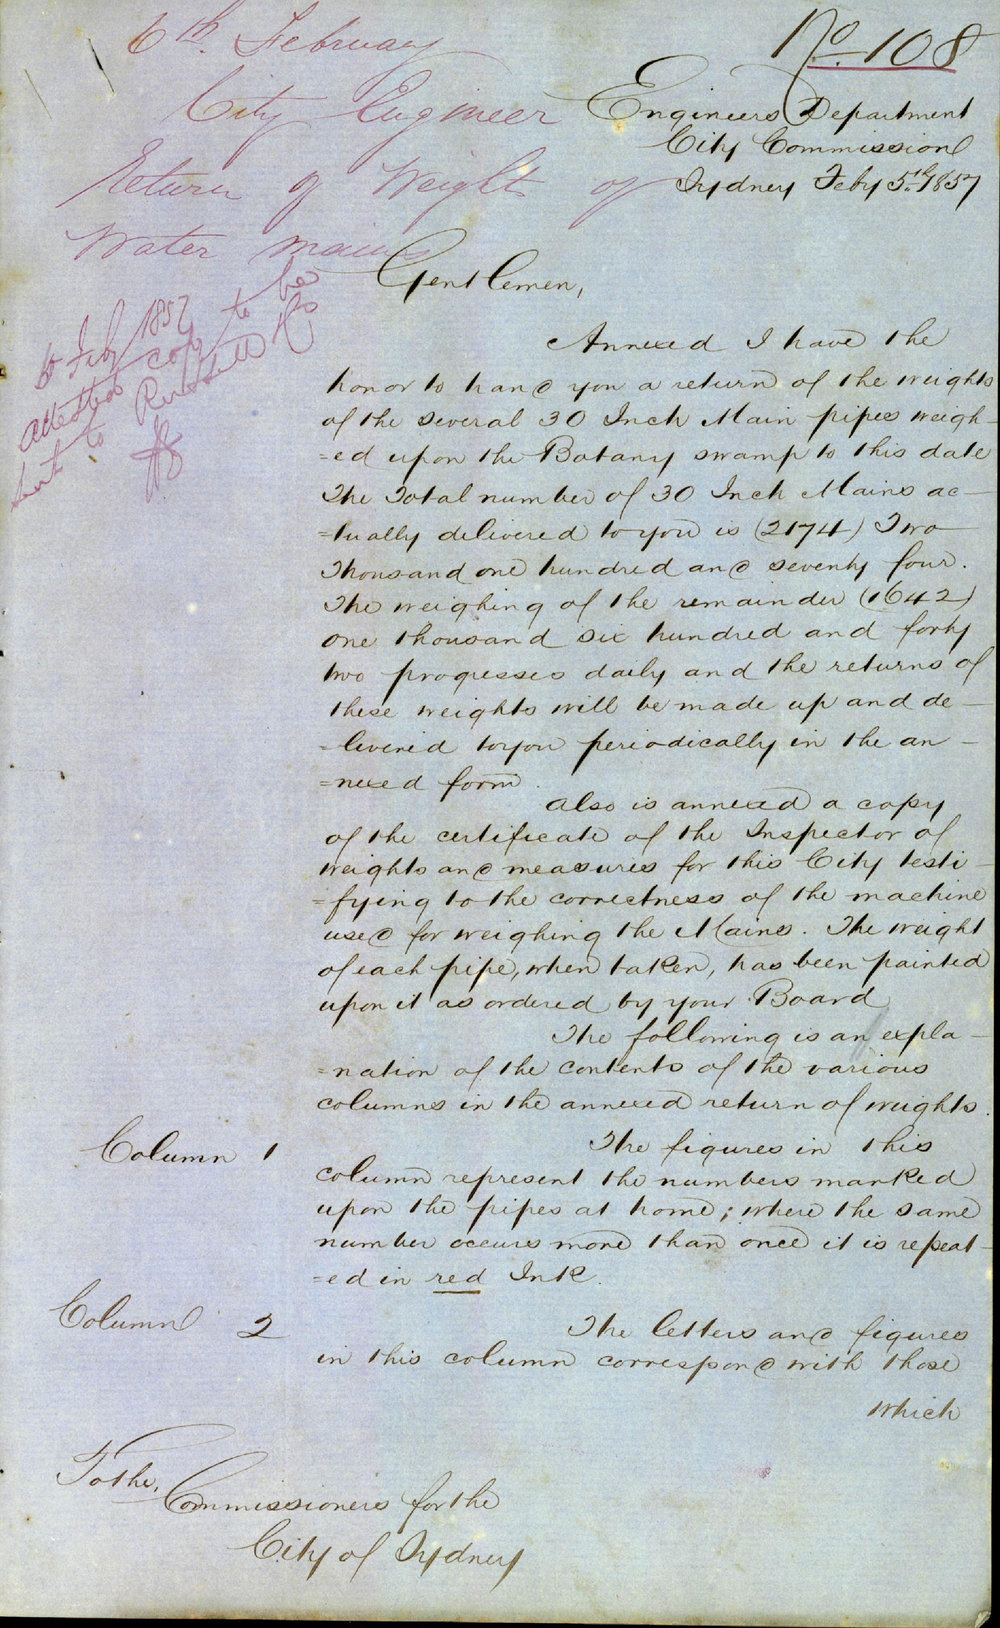 6th. February
City Engineer
Return of Weight of
Water mains
6 Feby 1857
attested copy to be
sent to Russell & Co
No 108
Engineers Department
City Commission
Sydney Feby 5th. 1857
Gentlemen,
Annexed I have the
honor to hand you a return of the weights
of the several 30 Inch Main pipes weigh-
=ed upon the Botany swamp to this date
The Total number of 30 Inch Mains ac-
=tually delivered to you is (2174) Two
Thousand one hundred and seventy four.
The weighing of the remainder (1642)
one thousand six hundred and forty
two progresses daily and the returns of
these weights will be made up and de-
=livered to you periodically in the an-
=nexed form.
Also is annexed a copy
of the certificate of the Inspector of
weights and measures for this City testi-
=fying to the correctness of the machine
used for weighing the Mains. The weight
of each pipe, when taken, has been painted
upon it as ordered by your Board
The following is an expla-
=nation of the contents of the various
columns in the annexed return of weights.
Column 1
The figures in this
column represent the numbers marked
upon the pipes at home; where the same
number occurs more than once it is repeat-
=ed in red Ink.
Column 2
The letters and figures
in this column correspond with those
which
To the,
Commissioners for the
City of Sydney